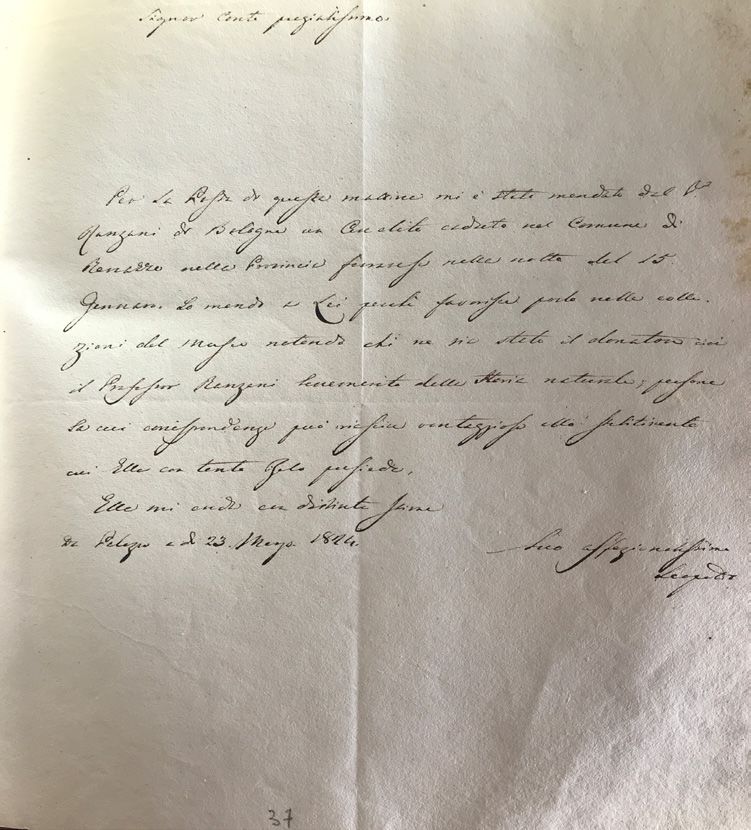 Signor Conte pregiatissimo
Per la Posta di questa mattina mi è stato mandato dal
Ranzani di Bologna un Aerolito caduto nel Comune di
Renazzo nella Provincia ferrarese nella notte del 15
Gennaro. Lo mando a Lei perchè favorisca porlo nelle colle-
zioni del Museo notando chi ne sia stato il donatore cioè
il Professor Ranzani benemerito della Storia naturale; persona
la cui corrispondenza può riescire vantaggiosa allo stabilimento
cui Ella con tanto zelo presiede.
Ella mi creda con distinta stima
Da Palazzo a dì 23. Marzo 1824
Suo affezionatissimo
Leopoldo
37